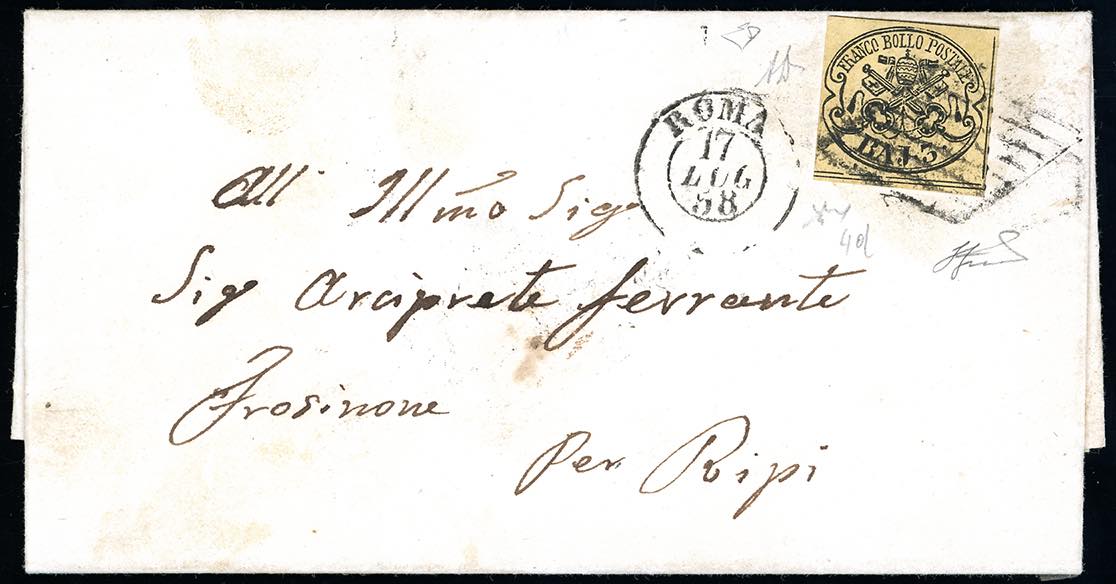 FRANCO BOLLO POSTALE
BAJ. 3
ROMA
17
LUG
58
All Illmo Sig
Sig Arciprete ferrante
Frosinone
Per Ripi